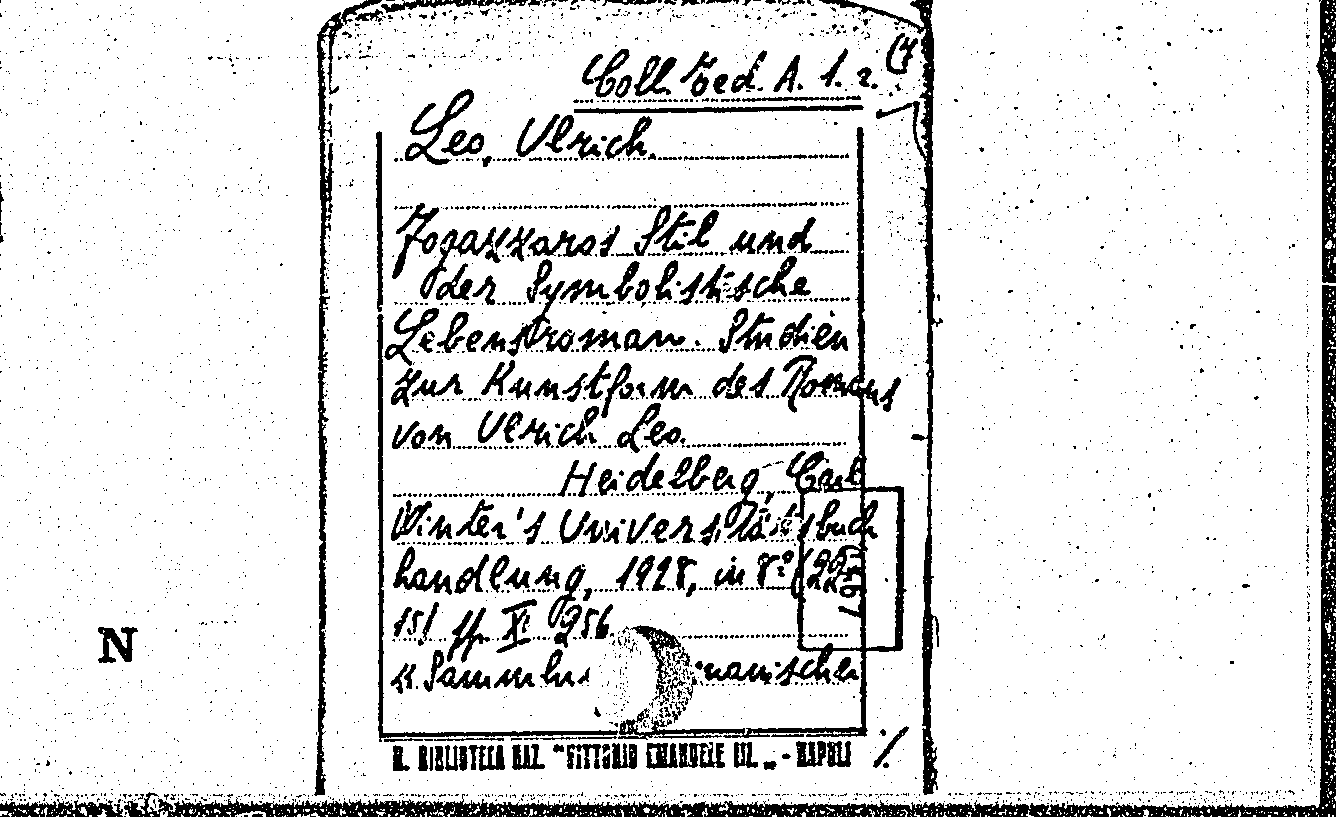 Coll. Ted. A. 1. 2. (7
Leo, Ulrich.
Fogazzaros Stil und
der Symbolistische
Lebensroman. Studien
zur Kunstform des Romans
von Ulrich Leo.
Heidelberg, Carl
Winter's Universitätsbuch
handlung, 1928, in 8º (22
15) pp. XI 256
« Sammlu manischer
N
R. BIBLIOTECA NAZ. "VITTORIO EMANUELE III" - NAPOLI
./.